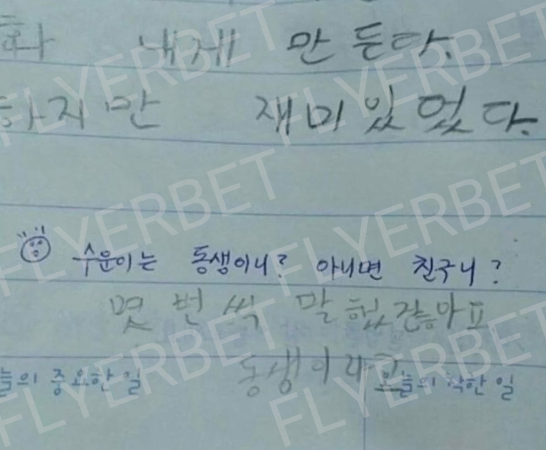 화 내게 만든다.
하지만 재미있었다.
수운이는 동생이니? 아니면 친구니?
몇 번 씩 말 했잖아요
동생이라고
늘의 중요한 일 오늘의 착한 일
FLYERBET
FLYERBET
FLYERBET
FLYERBET
FLYERBET
FLYERBET